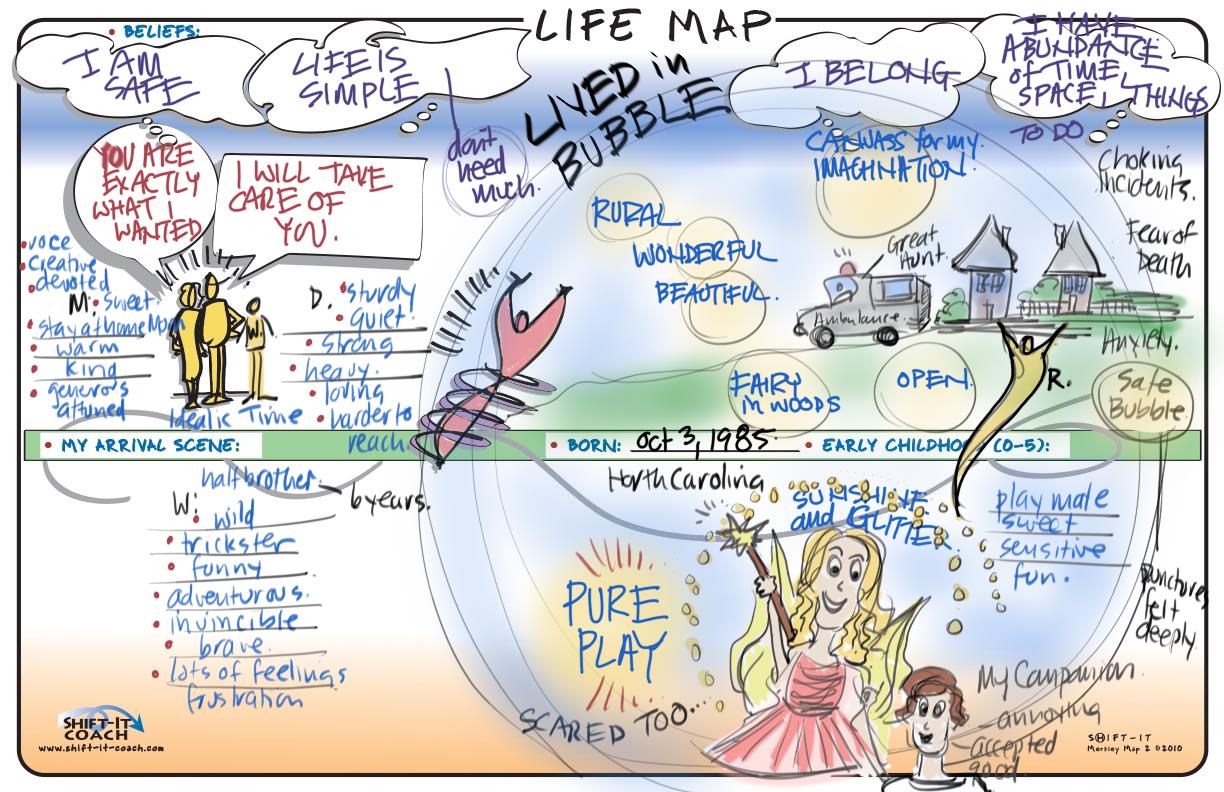 LIFE MAP
BELIEFS:
I AM
SAFE
LIFE IS
SIMPLE
don't
need
much.
LIVED in
BUBBLE
I BELONG
I HAVE
ABUNDANCE
of TIME,
SPACE, THINGS
TO DO
YOU ARE
EXACTLY
WHAT I
WANTED
I WILL TAKE
CARE OF
YOU.
CANWASS for my
IMAGINATION.
RURAL
WONDERFUL
BEAUTIFUL.
Great
Aunt.
Ambulance.
Choking
Incidents.
Fear of
Death
Anxiety.
Safe
Bubble.
voce
Creative
devoted
M: sweet
stay at home Mom
warm
king
generos
attuned
W.
Idealic Time
D. sturdy
quiet.
strong
heavy.
loving
harder to
reach.
FAIRY
in WOODS
OPEN.
R.
MY ARRIVAL SCENE:
BORN: Oct 3, 1985.
EARLY CHILDHOOD (0-5):
North Carolina
half brother.
6 years.
W:
wild
trickster
funny
adventurous.
invincible
brave.
lots of feelings
frustration
SUNSHINE
and GLITTER.
play mate
sweet
sensitive
fun.
punctures
felt
deeply.
PURE
PLAY
SCARED TOO...
My Companion.
annoying
accepted
good.
SHIFT-IT
COACH
www.shift-it-coach.com
SHIFT-IT
Merkley Map 2 ©2010